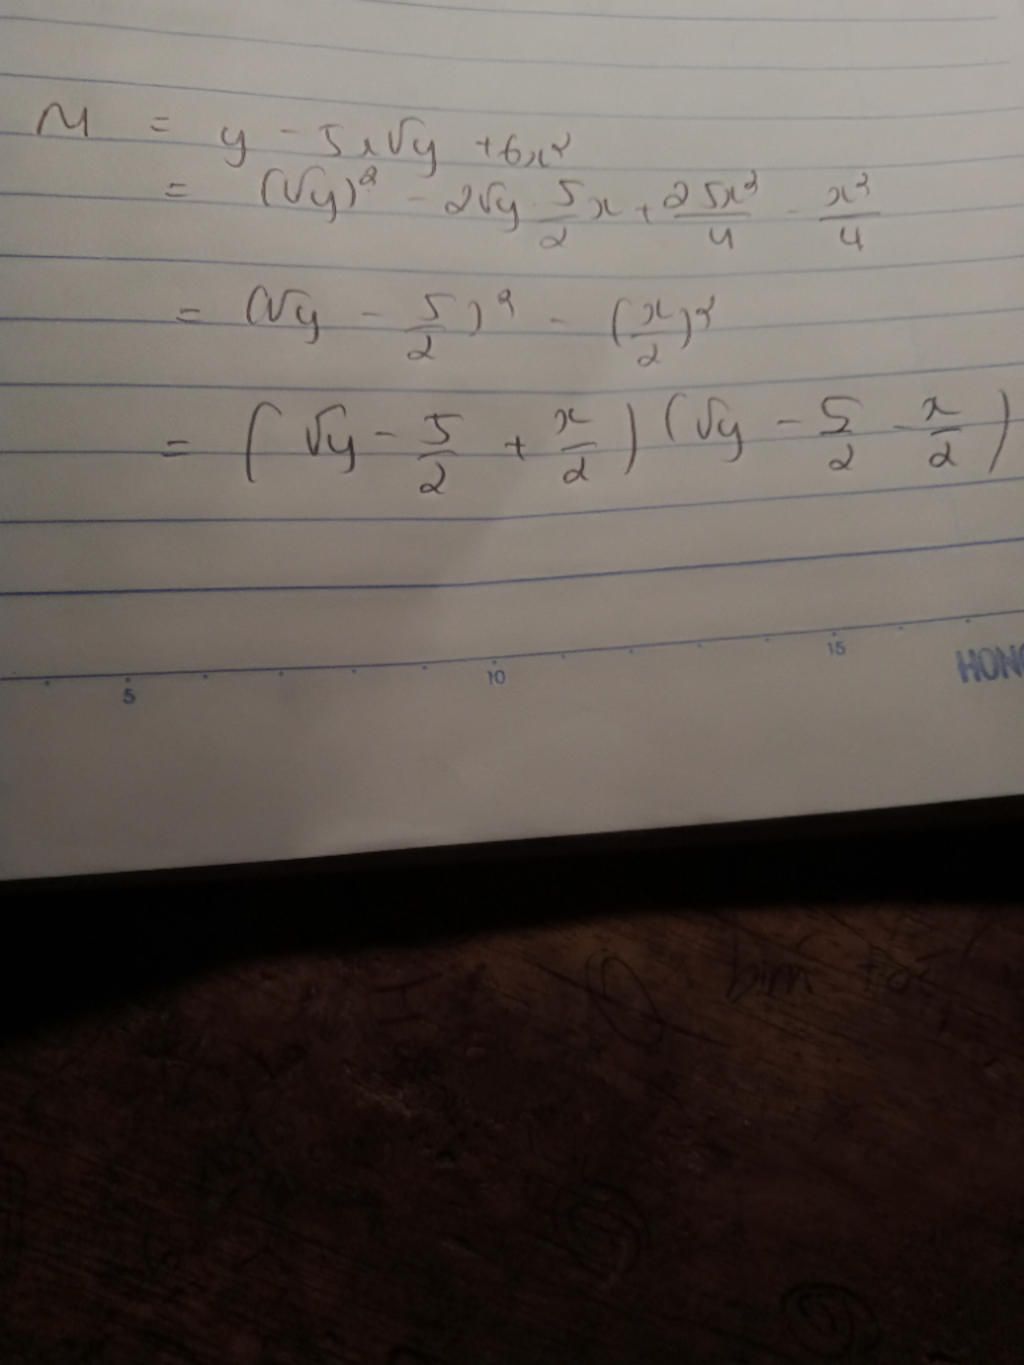 M = y - 5x√y + 6x²
= (√y)² - 2√y 5/2 x + 25x²/4 - x²/4
= (√y - 5/2)² - (x/2)²
= (√y - 5/2 + x/2) (√y - 5/2 - x/2)
5 10 15
HONG
bim